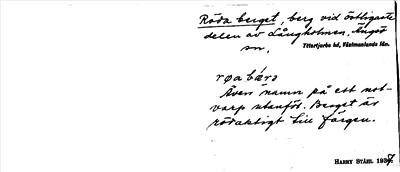 Röda berget, berg vid östligaste
delen av Långholmen, Ängsö
sn. Yttertjurbo hd, Västmanlands län.
røa bærs
Även namn på ett not-
varp utanför. Berget är
rödaktigt till färgen.
HARRY STÅHL 1937.